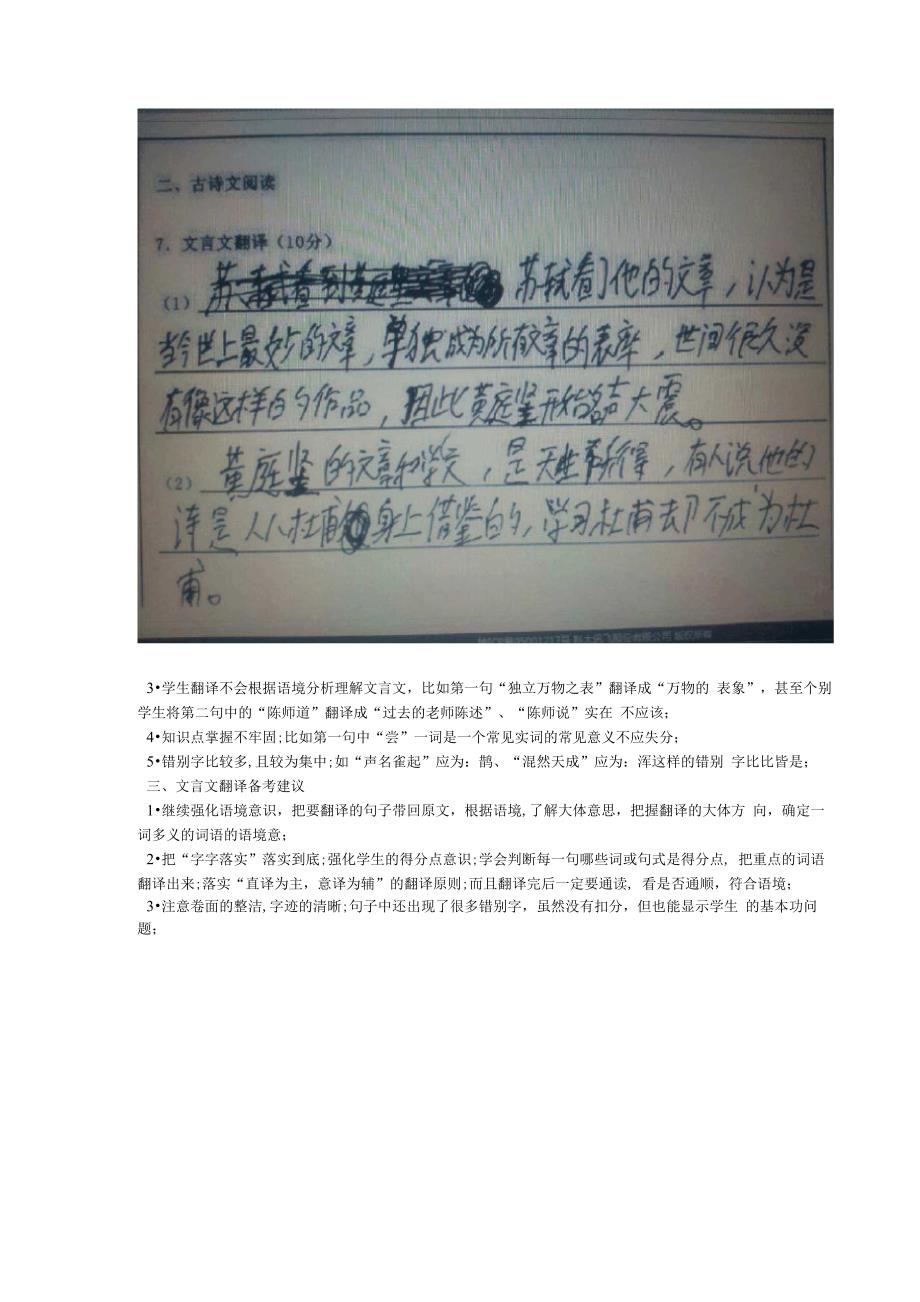 二、古诗文阅读
7．文言文翻译（10分）
（1）苏轼看到黄庭坚文章 苏轼看了他的文章，认为是
当今世上最妙的文章，单独成为所有文章的表率，世间很久没
有像这样的作品，因此黄庭坚开始名声大震。
（2）黄庭坚的文章和学文，是天生所得，有人说他的
诗是从杜甫身上借鉴的，学习杜甫去不成为杜
甫。
版权所有
3•学生翻译不会根据语境分析理解文言文，比如第一句“独立万物之表”翻译成“万物的 表象”，甚至个别
学生将第二句中的“陈师道”翻译成“过去的老师陈述”、“陈师说”实在 不应该；
4•知识点掌握不牢固;比如第一句中“尝”一词是一个常见实词的常见意义不应失分；
5•错别字比较多,且较为集中;如“声名雀起”应为：鹊、“混然天成”应为：浑这样的错别 字比比皆是；
三、文言文翻译备考建议
1•继续强化语境意识，把要翻译的句子带回原文，根据语境,了解大体意思，把握翻译的大体方 向，确定一
词多义的词语的语境意；
2•把“字字落实”落实到底;强化学生的得分点意识;学会判断每一句哪些词或句式是得分点, 把重点的词语
翻译出来;落实“直译为主，意译为辅”的翻译原则;而且翻译完后一定要通读, 看是否通顺，符合语境；
3•注意卷面的整洁,字迹的清晰;句子中还出现了很多错别字，虽然没有扣分，但也能显示学生 的基本功问
题；